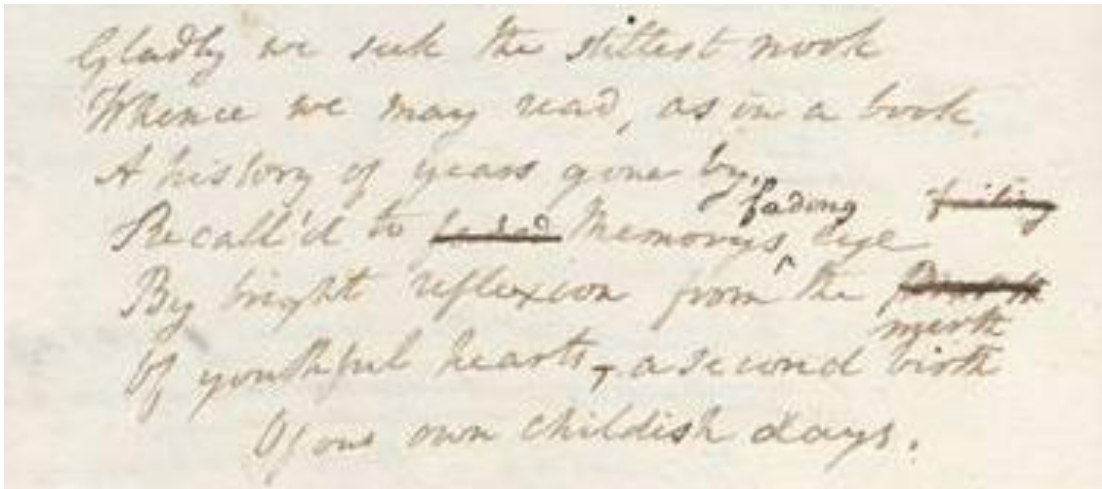 Gladly we seek the stillest nook
Whence we may read, as in a book
A history of years gone by,
fading failing
Recall'd to faded Memorys eye
By bright reflexion from the
mirth
Of youthful hearts, a second birth
Of our own childish days.